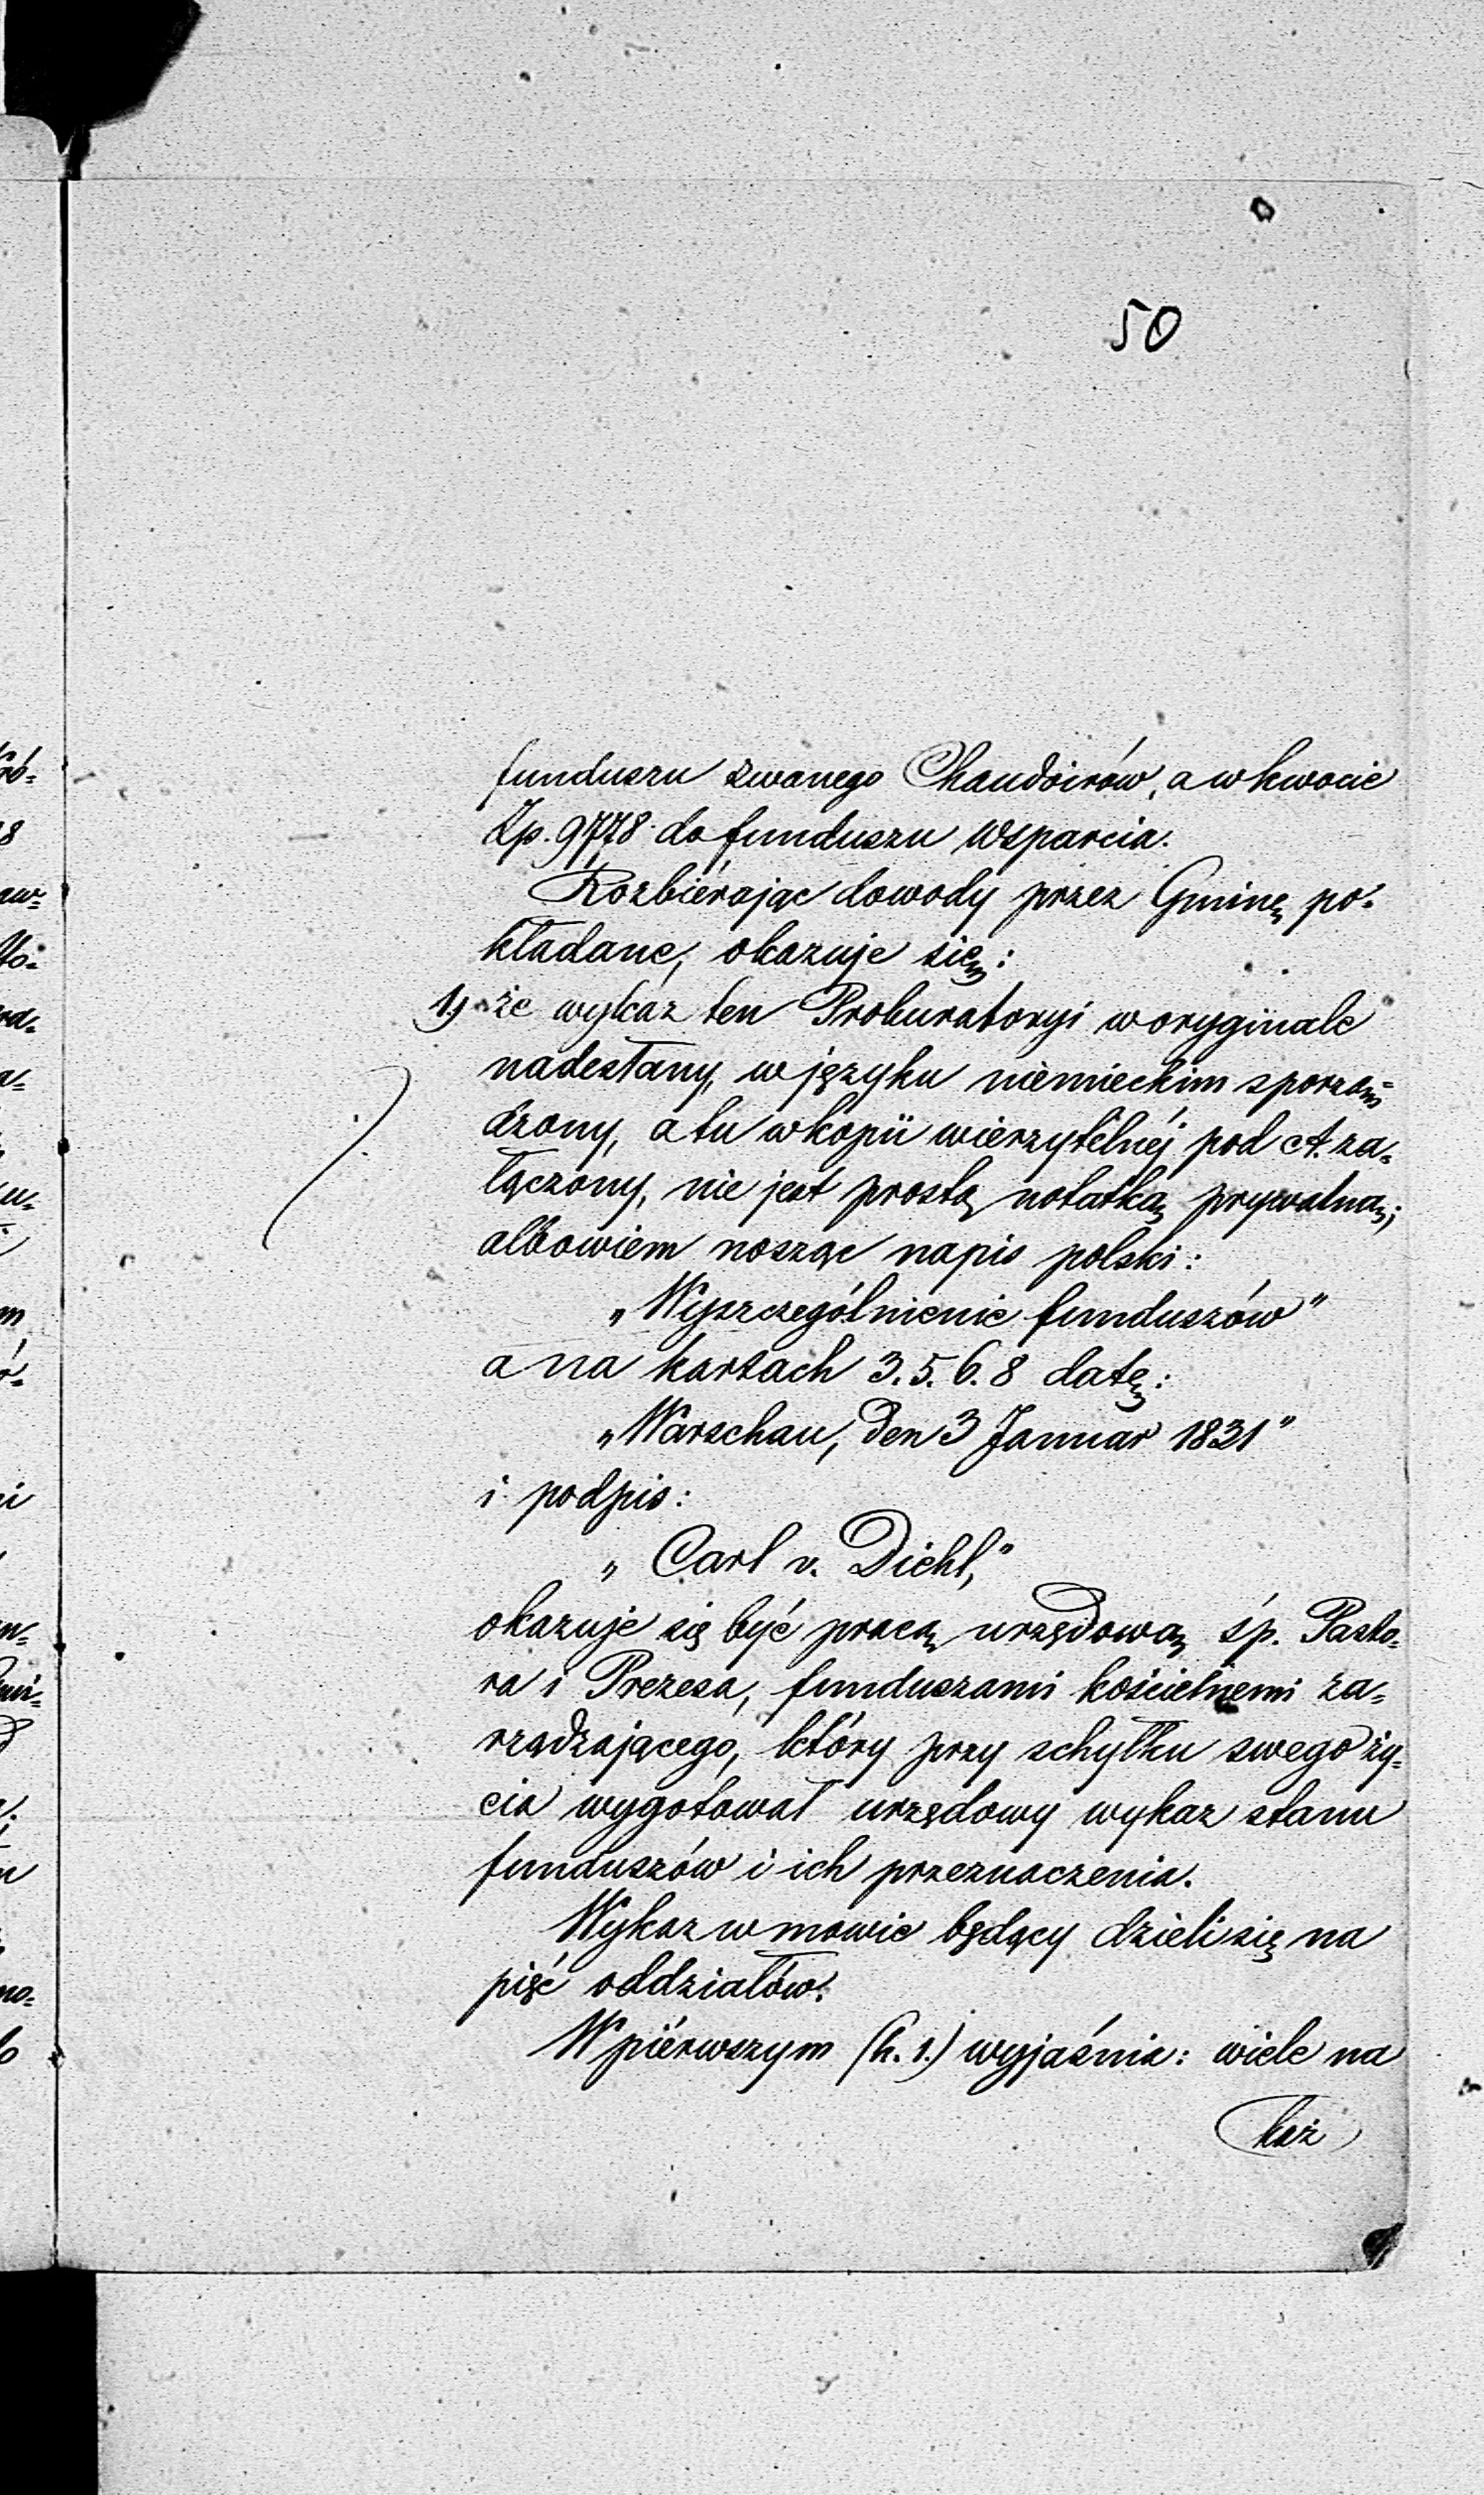 50
funduszu zwanego Chaudoirów, a w kwocie
Zp. 9778 do funduszu wsparcia.
Rozbiérając dowody przez Gminę po-
kładane, okazuje się:
1) że wykaz ten Prokuratoryi w oryginale
nadesłany, w języku niemieckim sporzą-
dzony, a tu w kopii wierzytélnéj pod A. za-
łączony, nie jest prostą notatką prywatną;
albowiem nosząc napis polski:
„Wyszczególnienie funduszów"
a na kartach 3. 5. 6. 8 datę:
„Warschau, den 3 Januar 1831"
i podpis:
„Carl v. Diehl,"
okazuje się być pracą urzędową śp. Pasto-
ra i Prezesa, funduszami kościelnemi za-
rządzającego, który przy schyłku swego ży-
cia wygotował urzędowy wykaz stanu
funduszów i ich przeznaczenia.
Wykaz w mowie będący dzieli się na
pięć oddziałów.
W piérwszym (k. 1.) wyjaśnia: wiele na
każ